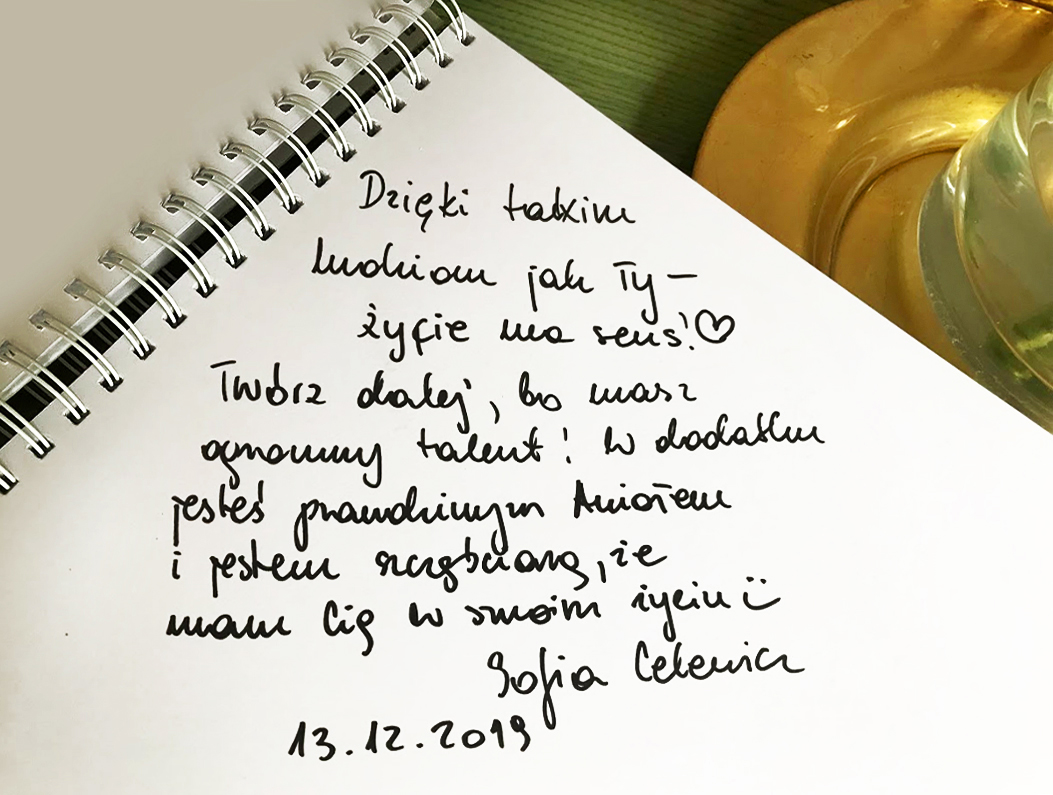 Dzięki takim
ludziom jak Ty –
życie ma sens! ♡
Twórz dalej, bo masz
ogromny talent! W dodatku
jesteś prawdziwym Aniołem
i jestem szczęściarą, że
mam Cię w swoim życiu Ü
Sofia Celewicz
13.12.2019